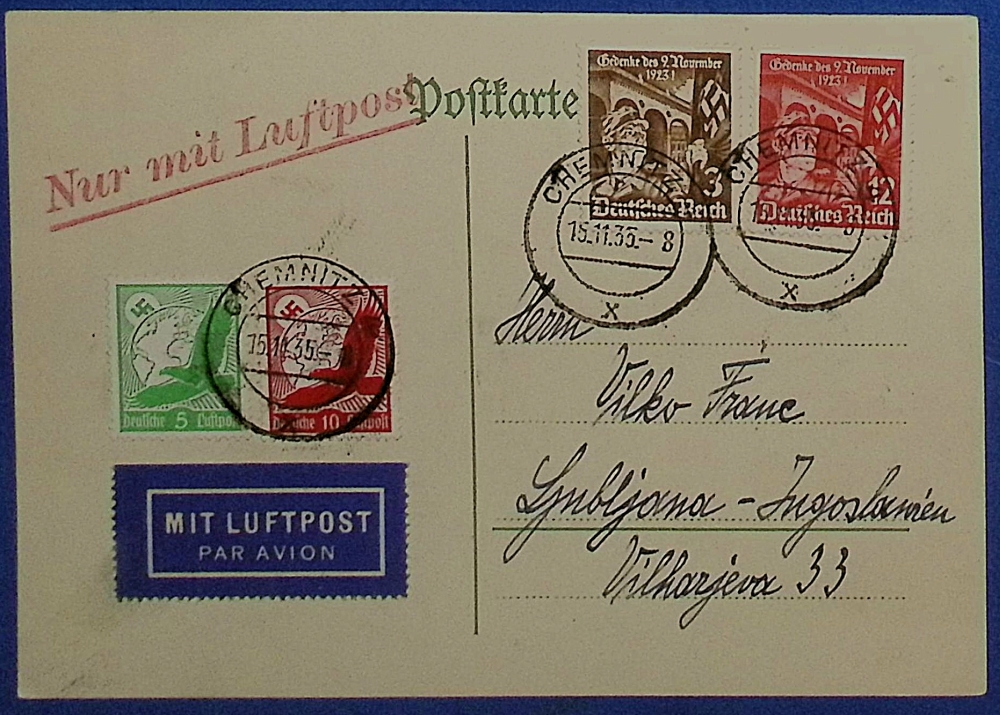 Nur mit Luftpost
Postkarte
Gedenke des 9. November
1923!
3
Deutsches Reich
Gedenke des 9. November
1923!
12
Deutsches Reich
CHEMNITZ
15.11.35.– 8
x
CHEMNITZ
x
CHEMNITZ
15.11.35.–
x
Deutsche 5 Luftpost
Deutsche 10 Luftpost
MIT LUFTPOST
PAR AVION
Herrn
Vilko Franc
Ljubljana – Jugoslawien
Vilharjeva 33